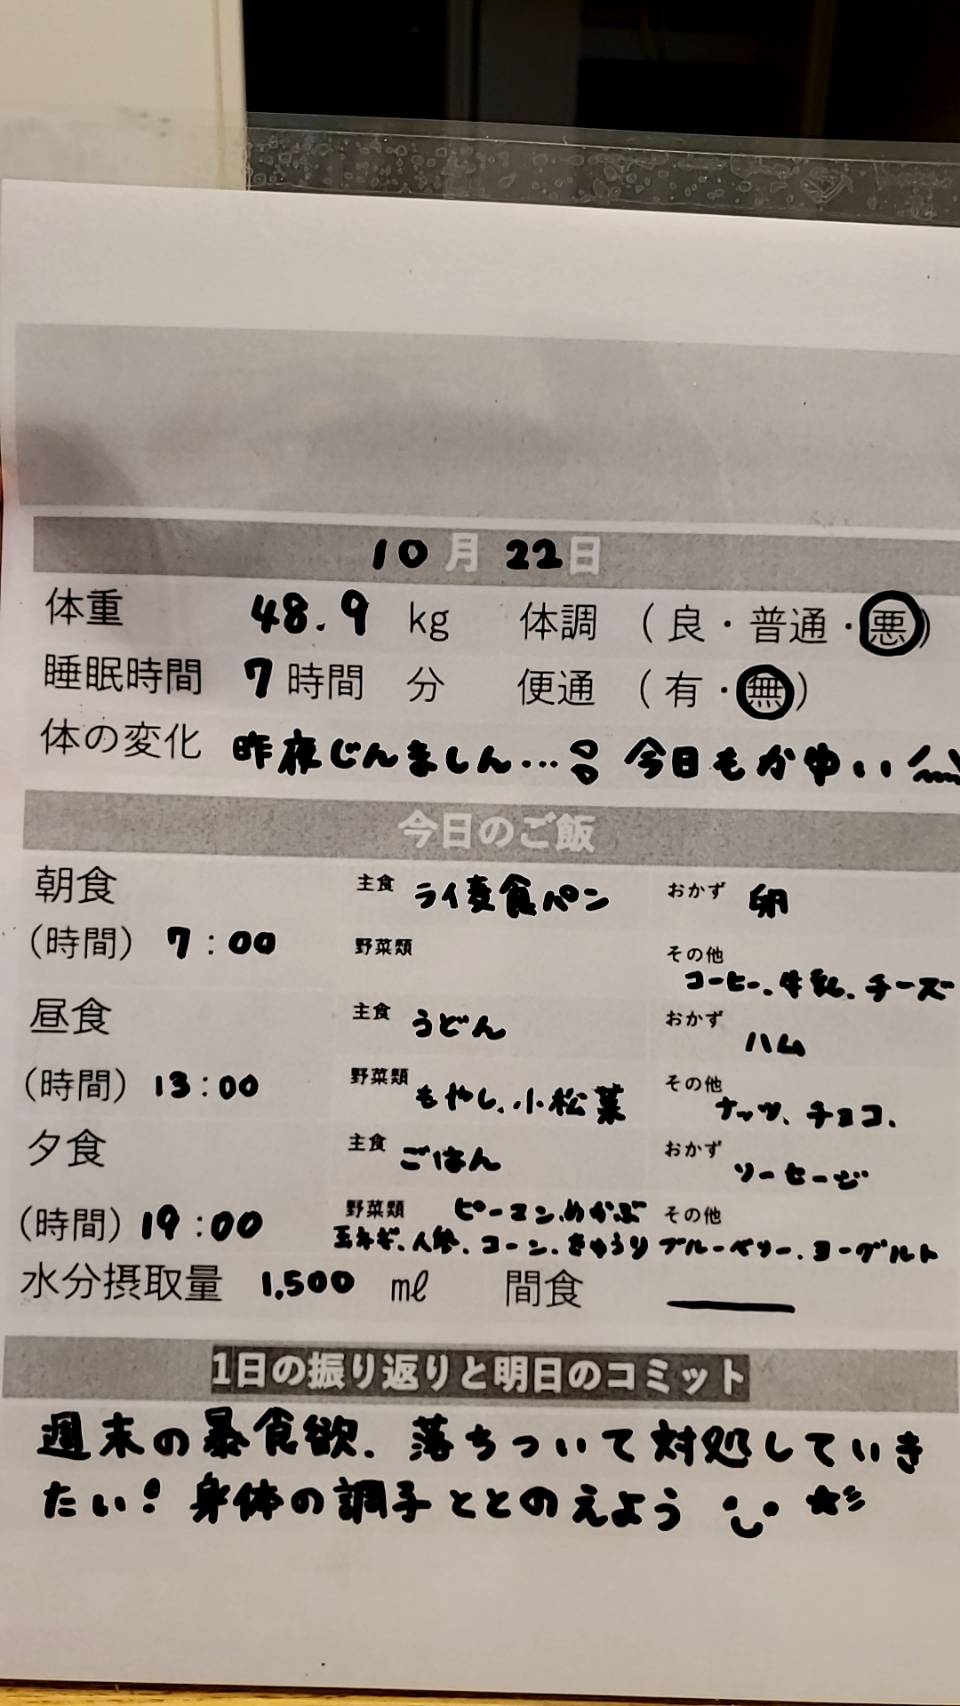 10月22日
体重 48.9 kg 体調 (良・普通・悪)
睡眠時間 7時間 分 便通 (有・無)
体の変化 昨夜じんましん… 今日もかゆい
今日のご飯
朝食 主食 ライ麦食パン おかず 卵
(時間) 7:00 野菜類 その他 コーヒー、牛乳、チーズ
昼食 主食 うどん おかず ハム
(時間) 13:00 野菜類 もやし、小松菜 その他 ナッツ、チョコ、
夕食 主食 ごはん おかず ソーセージ
(時間) 19:00 野菜類 ピーマン、めかぶ その他
玉ネギ、人参、コーン、きゅうり ブルーベリー、ヨーグルト
水分摂取量 1,500 ml 間食
1日の振り返りと明日のコミット
週末の暴食欲、落ちついて対処していき
たい! 身体の調子ととのえよう